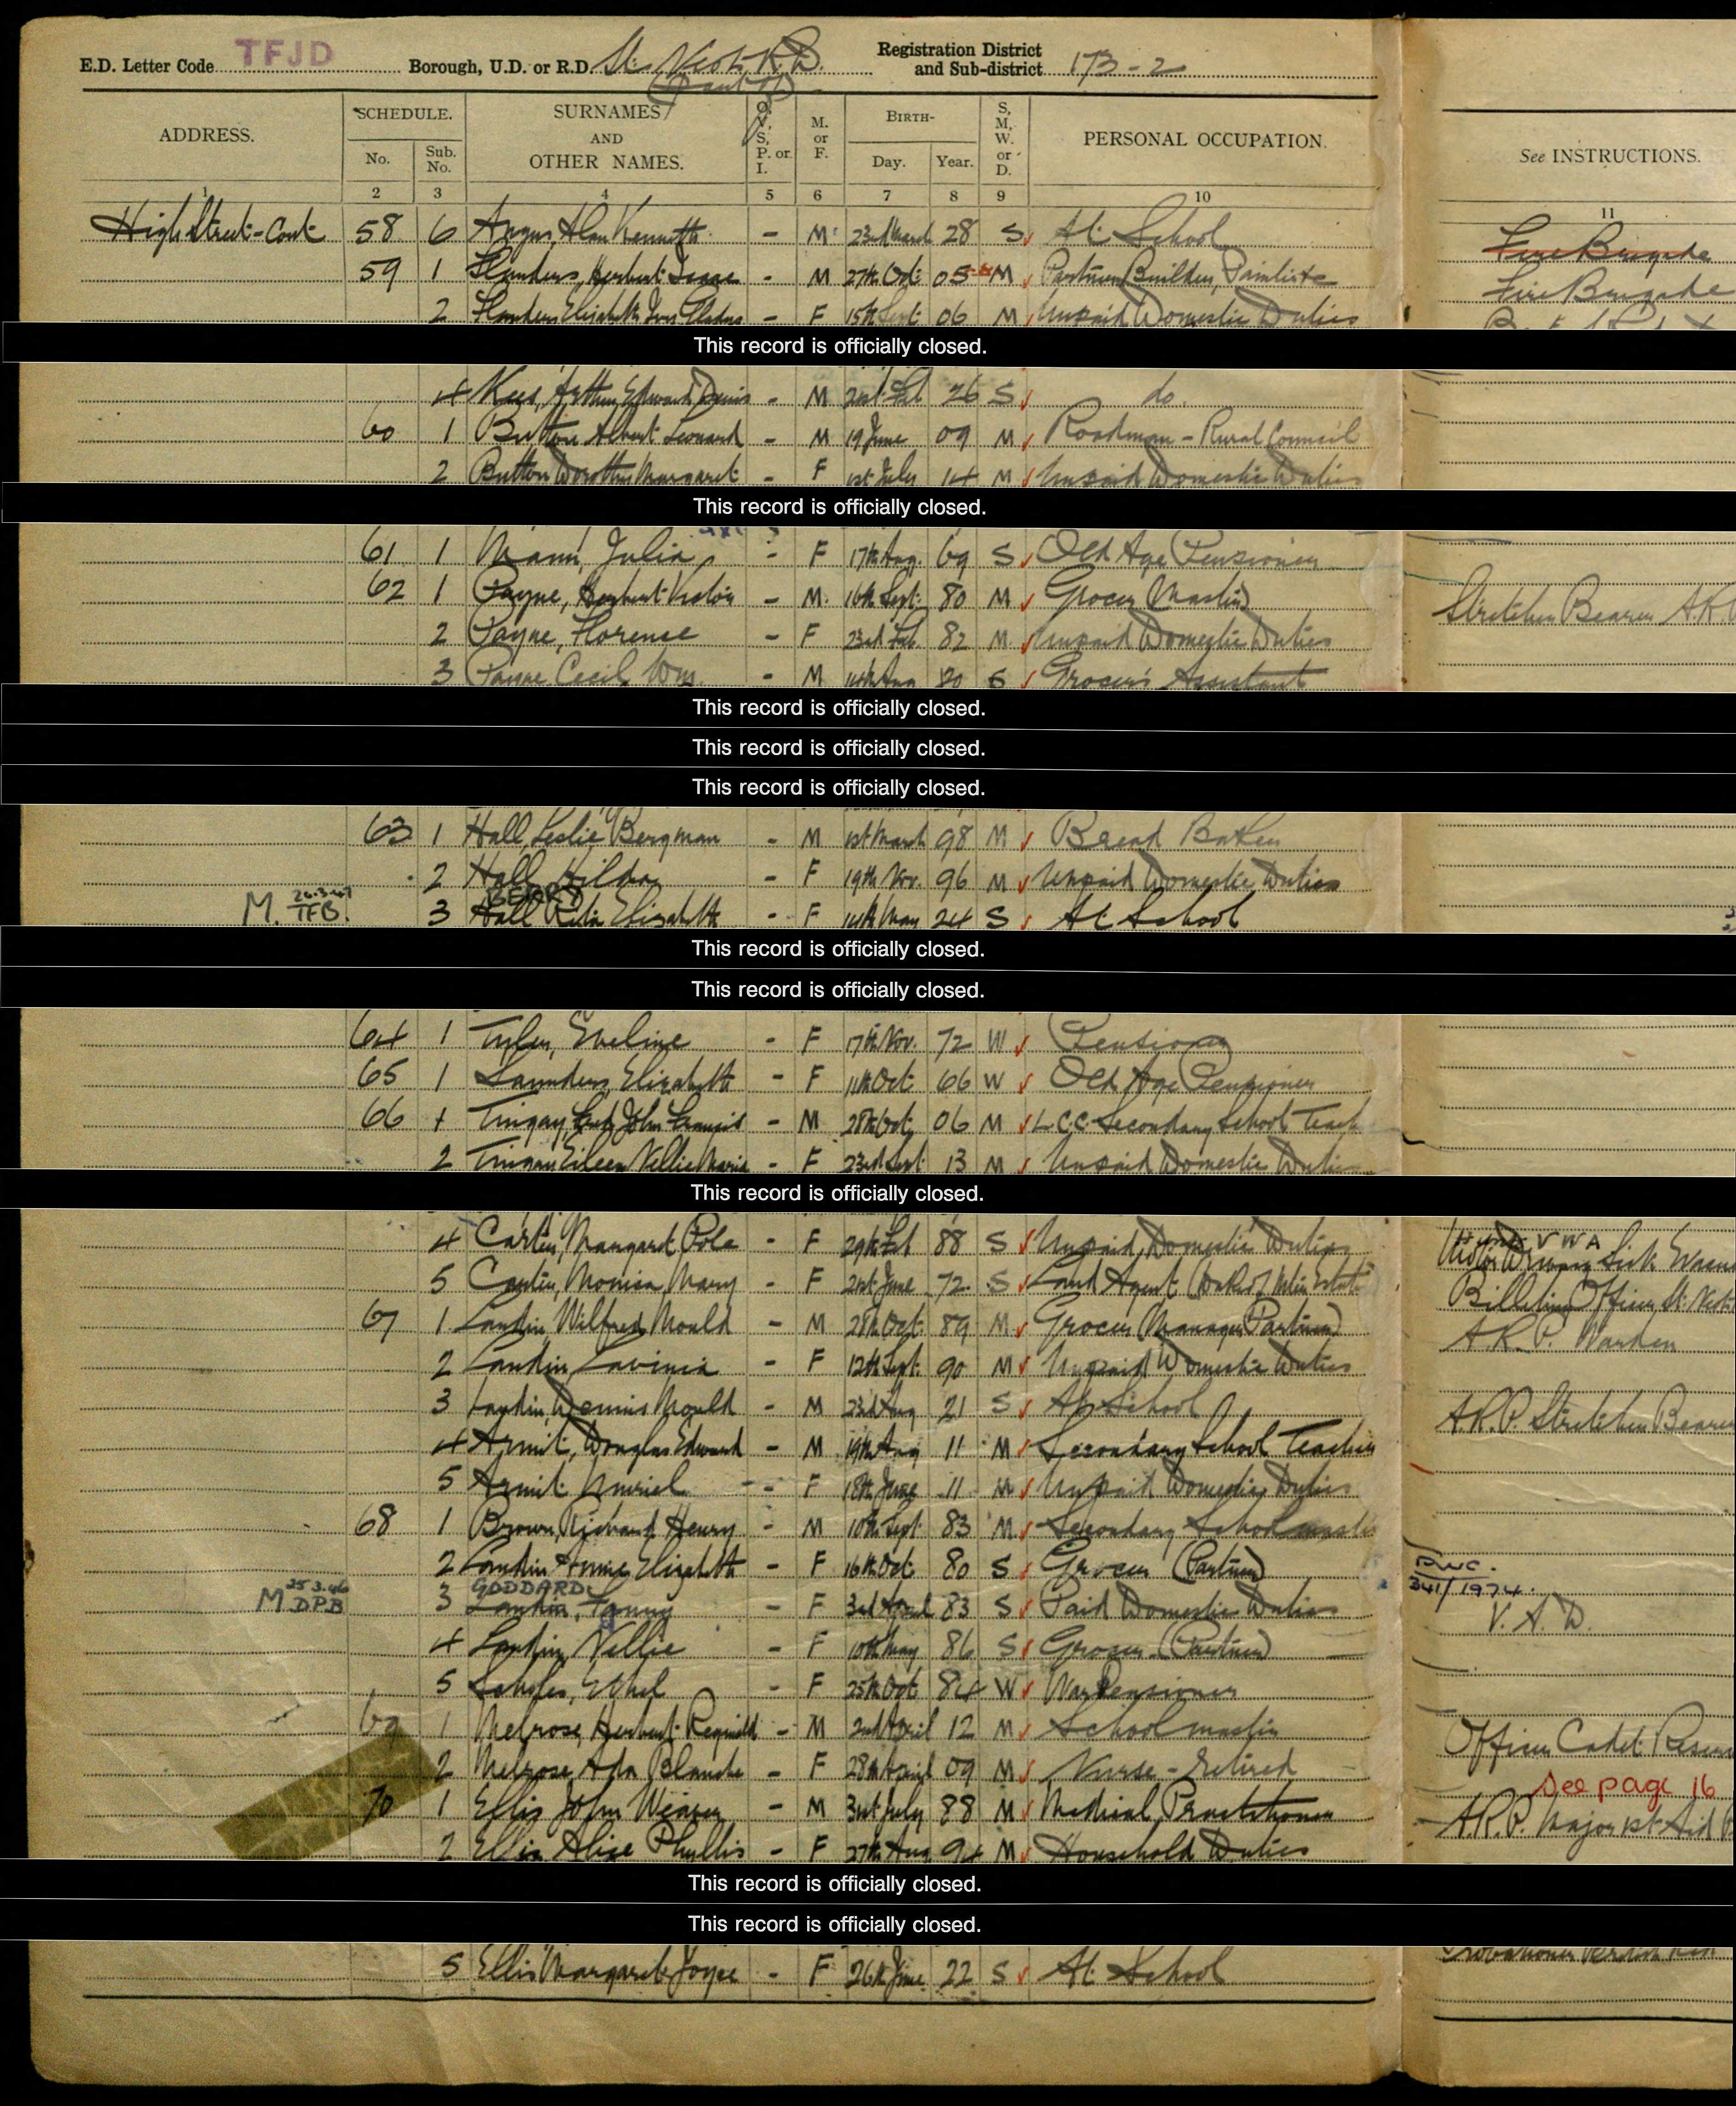 E.D. Letter Code TFJD Borough, U.D. or R.D. St. Neots R.D. Registration District and Sub-district 173-2
(Part of)
ADDRESS. SCHEDULE. No. Sub. No. SURNAMES AND OTHER NAMES. O, V, S, P. or I. M. or F. BIRTH- Day. Year. S, M, W. or D. PERSONAL OCCUPATION. See INSTRUCTIONS.
1 2 3 4 5 6 7 8 9 10 11
High Street - Cont 58 6 Angus, Alan Kenneth - M 23rd March 28 S At School Fire Brigade
59 1 Flanders, Herbert Isaac - M 27th Oct 05 M Partner Builder, Fire Brigade
2 Flanders Elizabeth - F 15th Sept 06 M Unpaid Domestic Duties
This record is officially closed.
4 Arthur Edward Denis - M 21st Feb 26 S do.
60 1 Button Albert Leonard - M 19 June 09 M Roadman - Rural Council
2 Button Dorothy Margaret - F 1st July 14 M Unpaid Domestic Duties
This record is officially closed.
61 1 Mann, Julia - F 17th Aug. 69 S Old Age Pensioner
62 1 Payne, Herbert Victor - M. 16th Sept. 80 M Grocer (Master) Stretcher Bearer A.R.P
2 Payne, Florence - F 23rd Feb. 82 M Unpaid Domestic Duties
3 Payne Cecil Wm. - M 14th Aug 20 S Grocer's Assistant
This record is officially closed.
This record is officially closed.
This record is officially closed.
63 1 Hall, Leslie Bergman - M 1st March 98 M Bread Baker
2 Hall, Hilda - F 19th Nov. 96 M Unpaid Domestic Duties
BERRY
M. 26.3.47 TFB. 3 Hall Rita Elizabeth - F 14th May 24 S At School
This record is officially closed.
This record is officially closed.
64 1 Tyler, Eveline - F 17th Nov. 72 W Pensioner
65 1 Saunders, Elizabeth - F 11th Oct 66 W Old Age Pensioner
66 1 Tingay, Fred, John Francis - M 28th Oct 06 M L.C.C Secondary School Teach
2 Tingay Eileen Nellie Maria - F 23rd Sept 13 M Unpaid Domestic Duties
This record is officially closed.
4 Carter, Margaret Pole - F 29th Feb 88 S Unpaid Domestic Duties
5 Carter, Monica Mary - F 21st June 72 S Land Agent Billeting Officer St. Neots
67 1 Landin Wilfred Mould - M 28th Oct 89 M Grocer (Manager Partner) A.R.P. Warden
2 Landin, Lavinia - F 12th Sept. 90 M Unpaid Domestic Duties
3 Landin, Dennis Mould - M 23rd Aug 21 S At School A.R.P. Stretcher Bearer
4 Armit, Douglas Edward - M 19th Aug 11 M Secondary School Teacher
5 Armit Muriel - F 18th June 11 M Unpaid Domestic Duties
68 1 Brown, Richard Henry - M 10th Sept 83 M Secondary School master
2 Landin Annie Elizabeth - F 16th Oct 80 S Grocer (Partner)
GODDARD
M 25.3.46 D.P.B 3 Landin, Fanny - F 3rd April 83 S Paid Domestic Duties V.A.D.
341/1974.
4 Landin, Nellie - F 10th May 86 S Grocer (Partner)
5 Scholes, Ethel - F 25th Oct 84 W War Pensioner
69 1 Melrose, Herbert Reginald - M 2nd April 12 M Schoolmaster Officer Cadet Reserve
2 Melrose Ada Blanche - F 28th April 09 M Nurse - Retired
See page 16
70 1 Ellis John Weaver - M 31st July 88 M Medical Practitioner A.R.P. Major 1st Aid P
2 Ellis Alice Phyllis - F 27th Aug 94 M Household Duties
This record is officially closed.
This record is officially closed.
5 Ellis Margaret Joyce - F 26th June 22 S At School